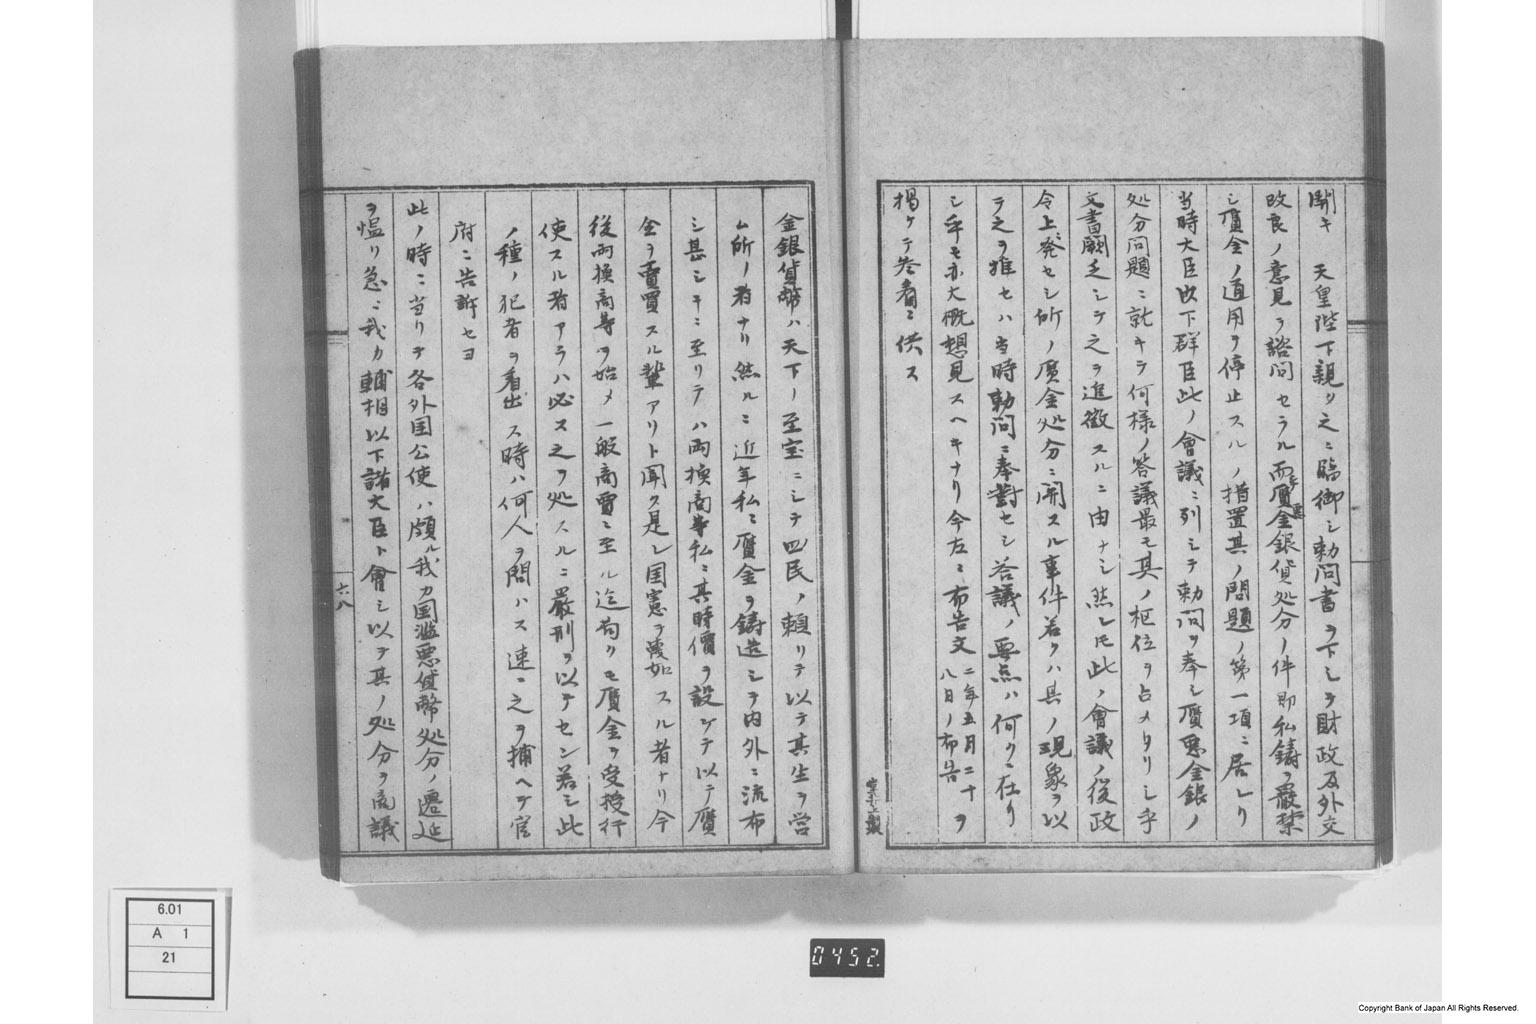 開キ　天皇陛下親ク之ニ臨御シ勅問書ヲ下シテ財政及外交
改良ノ意見ヲ諮問セラル而贋悪金銀貨処分ノ件即私鋳ヲ嚴禁
シ贋金ノ通用ヲ停止スルノ措置其ノ問題ノ第一項ニ居レリ
当時大臣以下群臣此ノ會議ニ列シテ勅問ヲ奉シ贋悪金銀ノ
処分問題ニ就キテ何様ノ答議最モ其ノ枢位ヲ占メタリシ乎
文書闕乏シテ之ヲ進徴スルニ由ナシ然レモ此ノ會議ノ後政
令上ニ発セシ所ノ贋金処分ニ関スル事件若クハ其ノ現象ヲ以
テ之ヲ推セハ当時勅問ニ奉對セシ答議ノ要点ハ何クニ在リ
シ乎モ亦大概想見スヘキナリ今左ニ布告文二年五月二十八日ノ布告ヲ
掲ケテ参看ニ供ス
金銀貨幣ハ天下ノ至宝ニシテ四民ノ頼リテ以テ其生ヲ営
ム所ノ者ナリ然ルニ近年私ニ贋金ヲ鋳造シテ内外ニ流布
シ甚シキニ至リテハ両換商等私ニ其時價ヲ設ケテ以テ贋
金ヲ賣買スル輩アリト聞ク是レ国憲ヲ蔑如スル者ナリ今
後両換商等ヲ始メ一般商賈ニ至ル迄苟リモ贋金ヲ受授行
使スル者アラハ必ス之ヲ処スルニ嚴刑ヲ以テセン若シ此
ノ種ノ犯者ヲ看出ス時ハ何人ヲ問ハス速ニ之ヲ捕ヘテ官
府ニ告訴セヨ
此ノ時ニ当リテ各外国公使ハ頗ル我カ国濫悪貨幣処分ノ遷延
ヲ慍リ急ニ我カ輔相以下諸大臣ト會シ以テ其ノ処分ヲ商議
六八
6.01
A 1
21
0452
Copyright Bank of Japan All Rights Reserved.